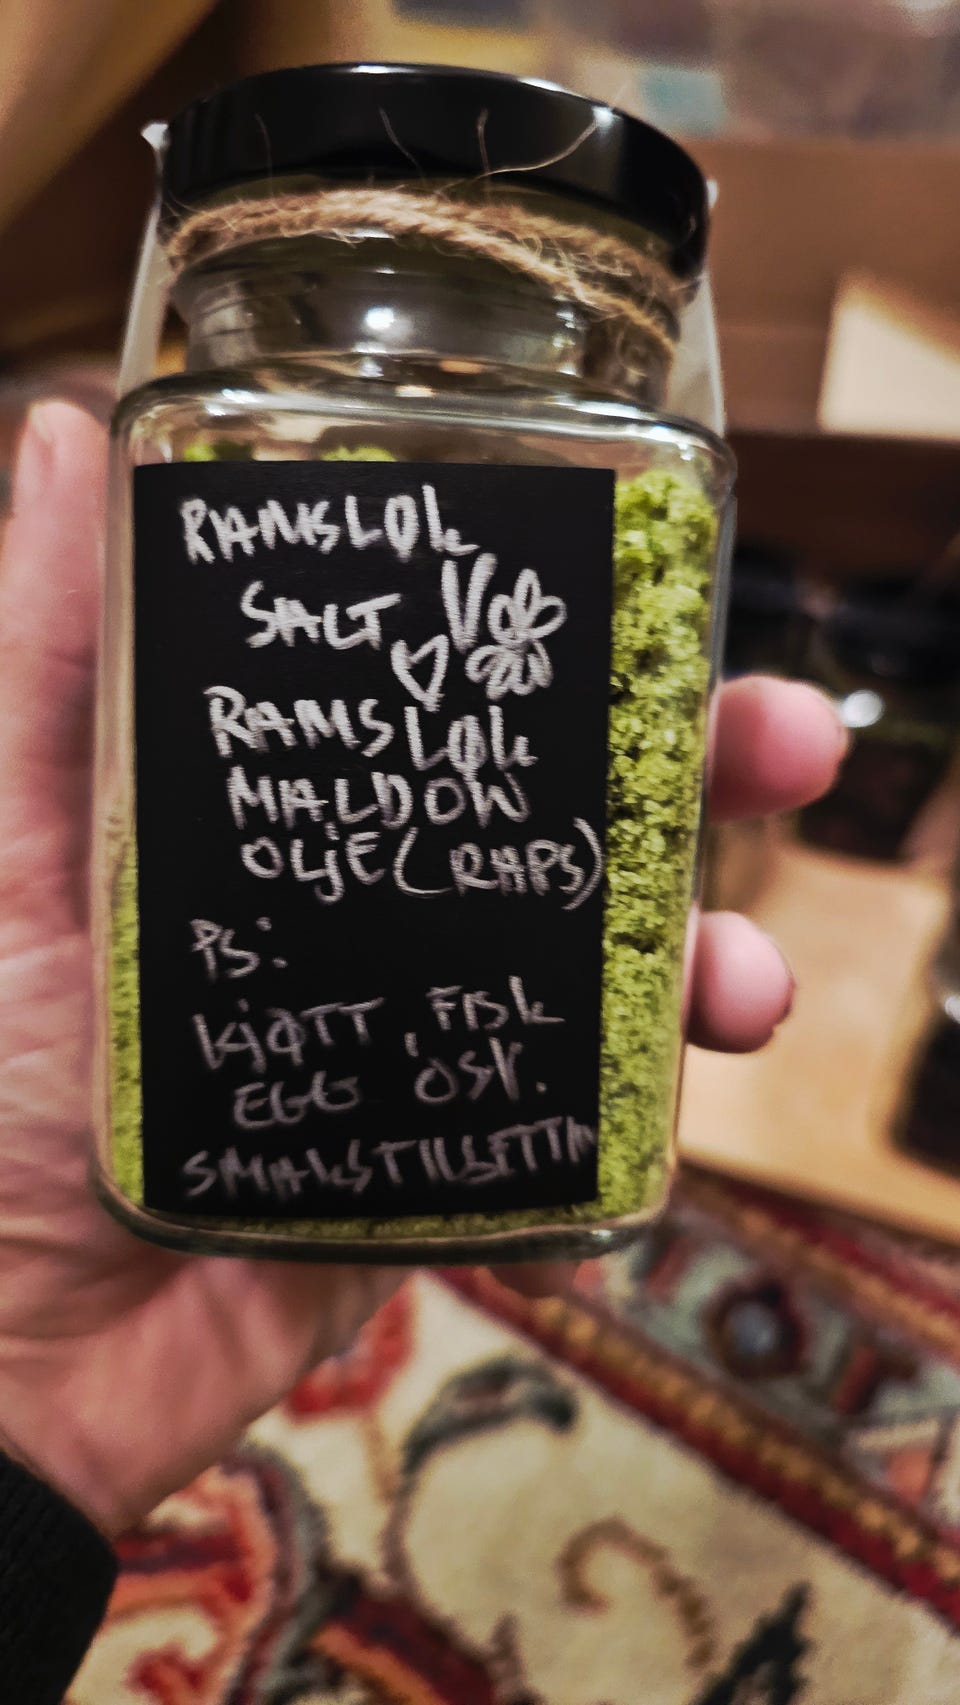 RAMSLØK
SALT
RAMSLØK
MALDOW
OLJE (RAPS)
PS:
KJØTT, FISK
EGG OST.
SMAKSTILSETTIN